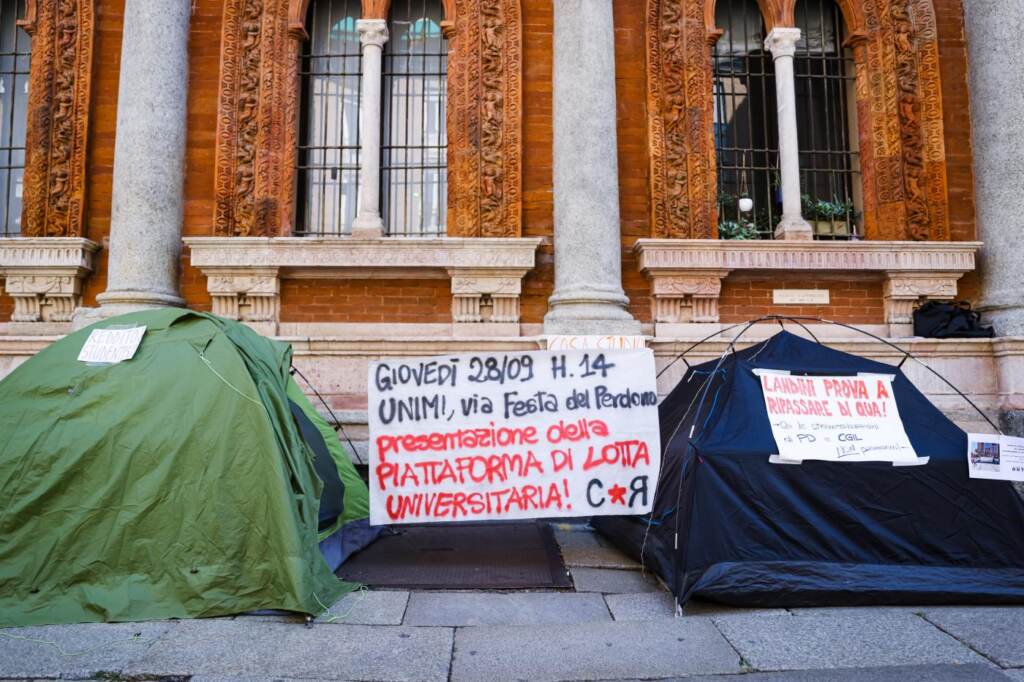 REDDITO
STUDENT
CASA STUDIO
GIOVEDÌ 28/09 H.14
UNIMI, via Festa del Perdono
presentazione della
PIATTAFORMA DI LOTTA
UNIVERSITARIA! C★Я
LANDINI PROVA A
RIPASSARE DI QUA!
di PD e CGIL